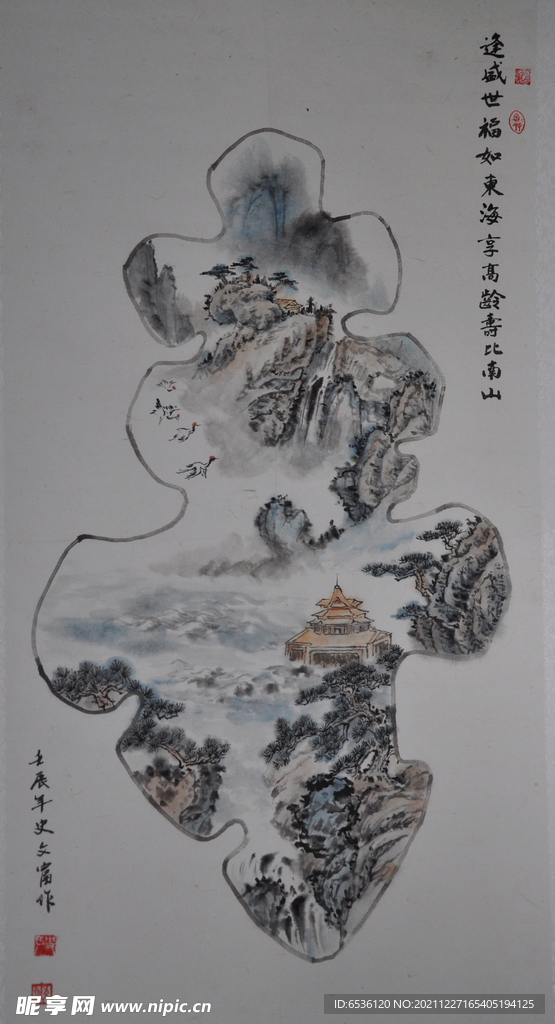 逢盛世福如東海享高齡壽比南山
壬辰年史文富作
昵享网 www.nipic.cn
ID:6536120 NO:20211227165405194125